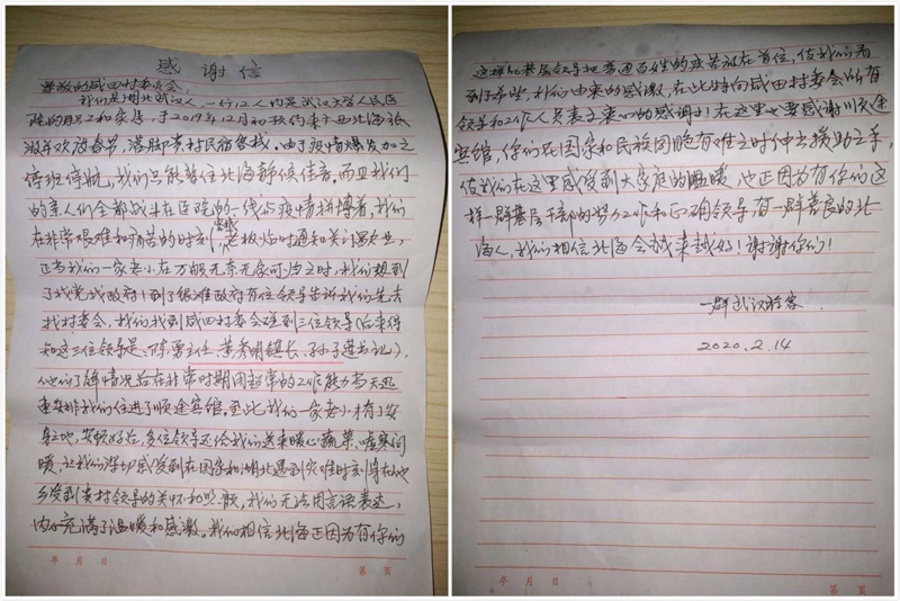 感谢信
尊敬的咸田村委会:
我们是湖北武汉人,一行12人均是武汉大学人民医
院的员工和家属,于2019年12月初预约来广西北海旅
游并欢度春节,落脚贵村民宿客栈。由于疫情爆发加之
停班停航,我们只能暂住北海静候佳音。而且我们
的亲人们全部战斗在医院的一线与疫情拼搏着,我们
在非常艰难和痛苦的时刻,客栈老板临时通知关门歇业,
正当我们一家老小在万般无奈无家可归之时,我们想到
了找党找政府!到了银滩政府有位领导告诉我们先去
找村委会,我们找到咸田村委会碰到三位领导(后来得
知这三位领导是:陈勇主任、叶秀明镇长、孙子进书记),
他们了解情况后在非常时期用超常的工作能力当天迅
速安排我们住进了顺途宾馆。至此我们一家老小才有了安
身之地,安顿好后,多位领导还给我们送来暖心蔬菜、嘘寒问
暖,让我们深切感受到在国家和湖北遇到灾难时刻身在他
乡受到贵村领导的关怀和照顾,我们无法用言语表达,
内心充满了温暖和感激。我们相信北海正因为有你们
年 月 日
第 页
这样的基层领导把普通百姓的疾苦放在首位,使我们看
到了希望,我们由衷的感激,在此特向咸田村委会所有
领导和工作人员表示衷心的感谢!在这里也要感谢顺途
宾馆,你们在国家和民族困难有难之时伸出援助之手,
使我们在这里感受到大家庭的温暖,也正因为有你们这
样一群基层干部的努力工作和正确领导有一群善良的北
海人,我们相信北海会越来越好!谢谢你们!
一群武汉旅客
2020.2.14
年 月 日
第 页